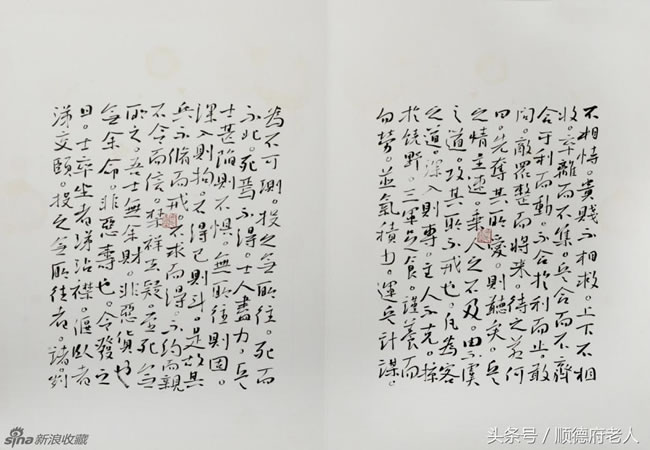 不相恃。貴賤不相救。上下不相
收。卒離而不集。兵合而不齊
合于利而動。不合於利而止。敢
問。敵眾整而將來。待之若何
曰。先奪其所愛。則聽矣。兵
之情主速。乘人之不及。由不虞
之道。攻其所不戒也。凡為客
之道。深入則專。主人不克。掠
於饒野。三軍足食。謹養而
勿勞。並氣積力。運兵計謀。
為不可測。投之無所往。死而
不北。死焉不得。士人盡力。兵
士甚陷則不懼。無所往則固。
深入則拘。不得已則鬥。是故其
兵不修而戒。不求而得。不約而親
不令而信。禁祥去疑。至死無
所之。吾士無余財。非惡貨也
無余命。非惡壽也。令發之
日。士卒坐者涕沾襟。偃臥者
涕交頤。投之無所往者。諸劌
sina新浪收藏
头条号/顺德府老人